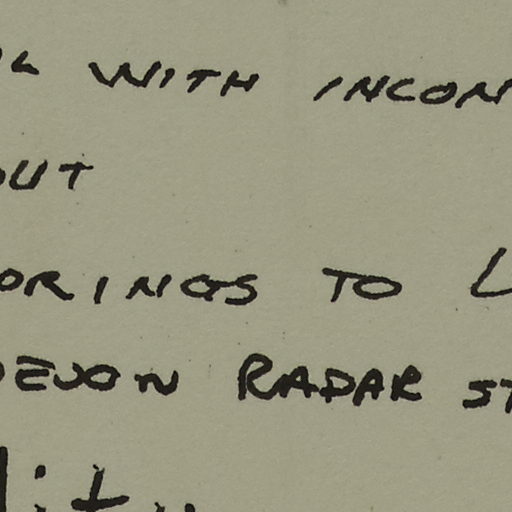 WITH INCON
OUT
ORINGS TO L
DEVON RADAR ST